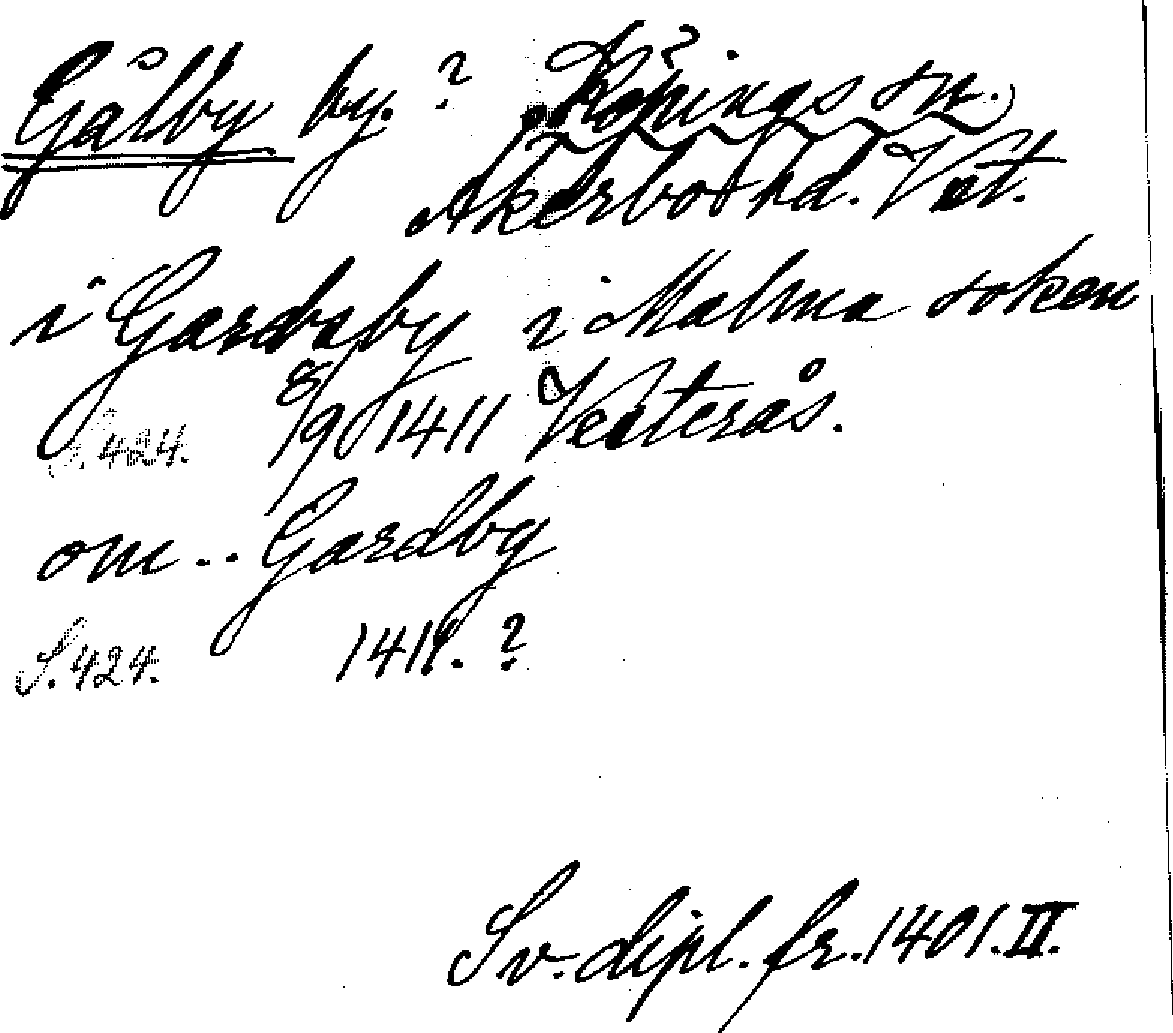 Gålby by. ? Köpings sn.
Åkerbo hd. Vst.
i Gardsby i Malma soken
S. 424. 8/9 1411 Vesterås.
om .. Gardby
S. 424. 1411. ?
Sv. dipl. fr. 1401. II.